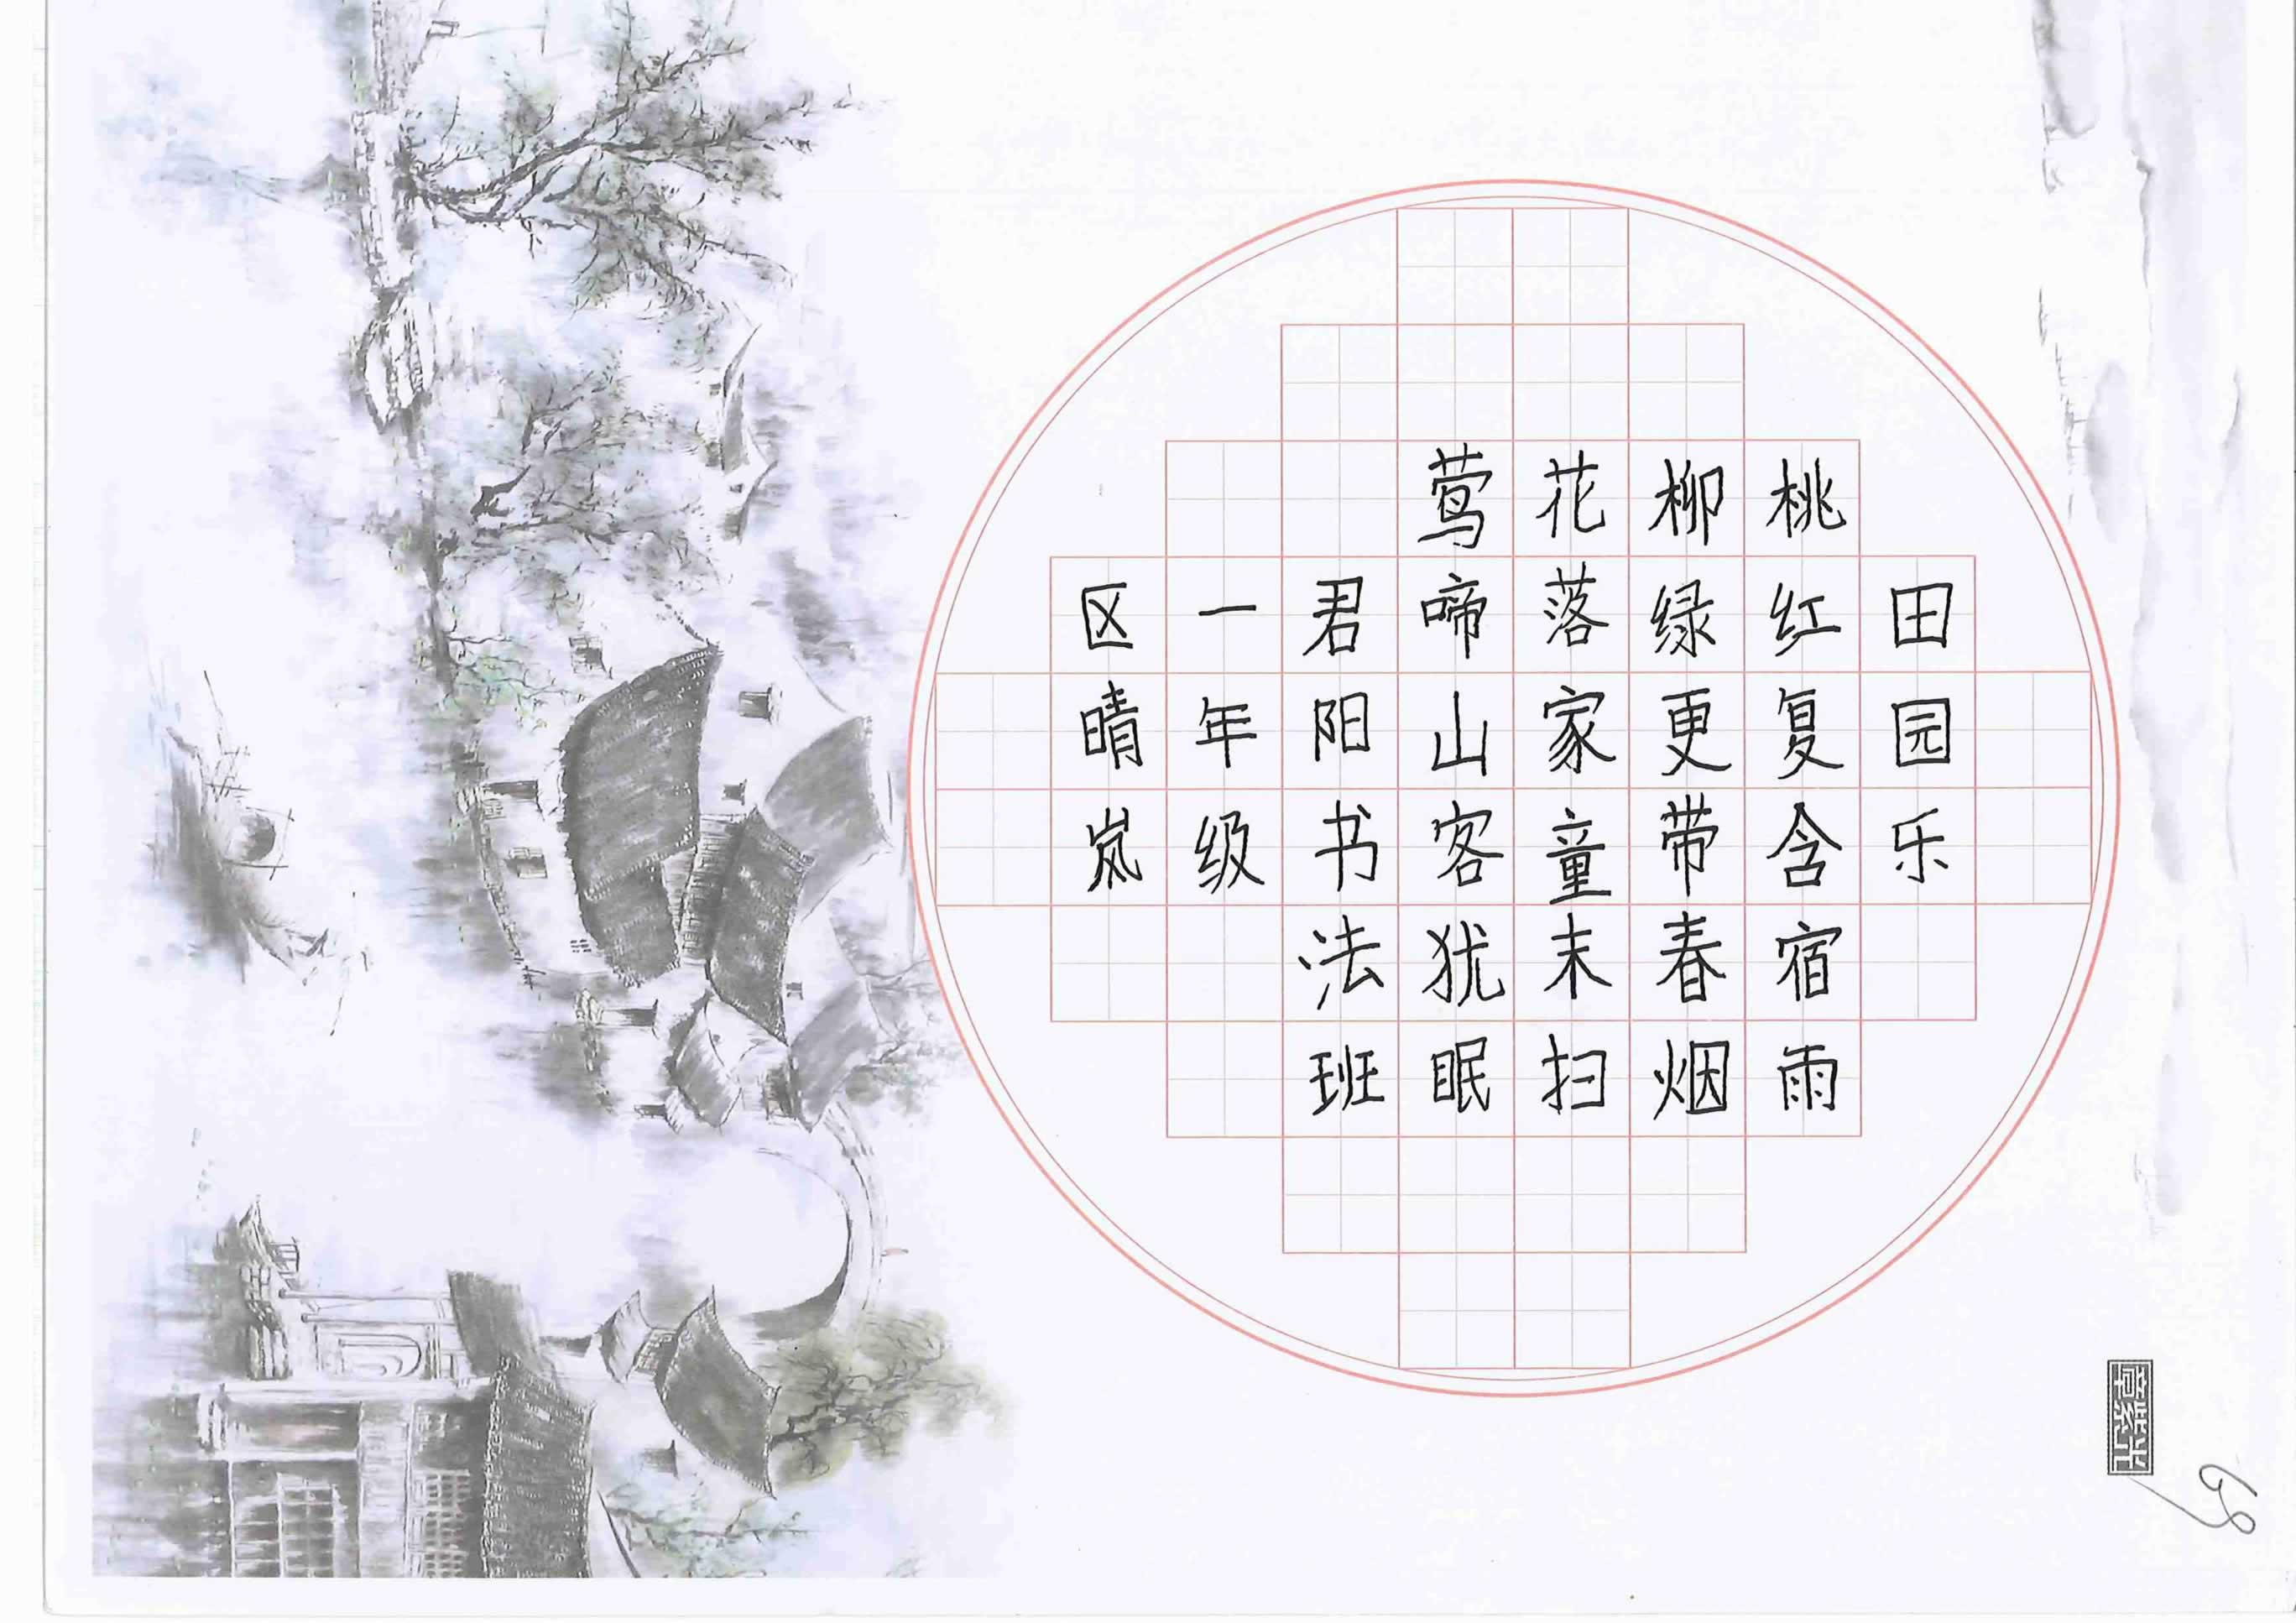 田园乐
桃红复含宿雨
柳绿更带春烟
花落家童末扫
莺啼山客犹眠
君阳书法班
一年级
区晴岚
69